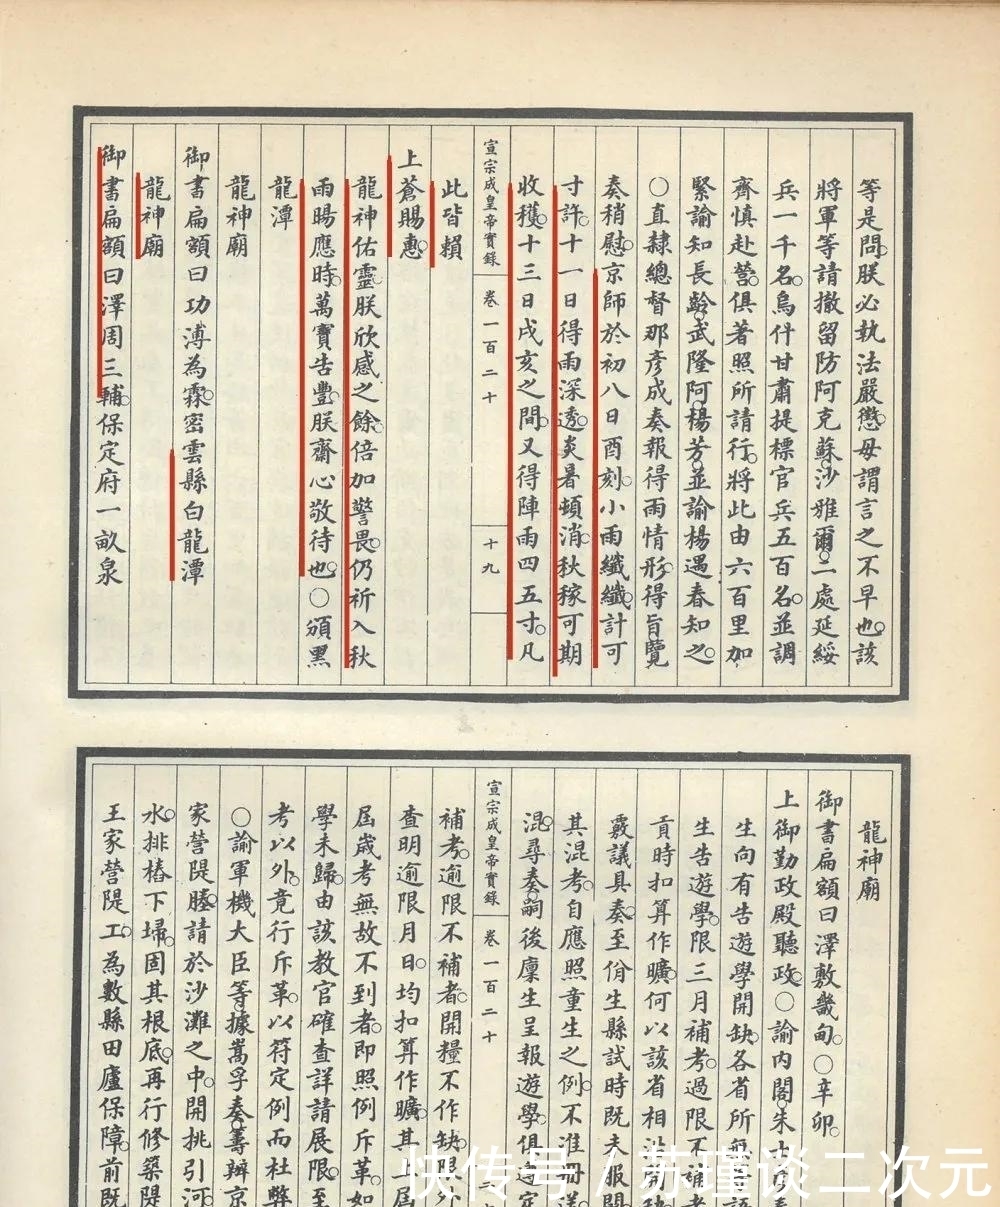 等是問。朕必執法嚴懲。毋謂言之不早也。該
將軍等請撤留防阿克蘇。沙雅爾。二處延綏
兵一千名。烏什甘肅提標官兵五百名。並調
齊慎赴營。俱著照所請行。將此由六百里加
緊諭知長齡。武隆阿。楊芳。並諭楊遇春知之。
○直隸總督那彥成奏報得雨情形。得旨覽
奏稍慰。京師於初八日酉刻。小雨纖纖。計可
寸許。十一日得雨深透。炎暑頓消。秋稼可期
收穫。十三日戌亥之間。又得陣雨四五寸。凡
宣宗成皇帝實錄 卷一百二十 十九
此皆賴
上蒼賜惠。
龍神佑靈。朕欣感之餘。倍加警畏。仍祈入秋
雨暘應時。萬寶告豐。朕齋心敬待也。○頒黑
龍潭
龍神廟
御書扁額曰功溥為霖。密雲縣白龍潭
龍神廟
御書扁額曰澤周三輔。保定府一畝泉
龍神廟
御書扁額曰澤敷畿甸。○辛卯。
上御勤政殿聽政。○諭內閣。朱士
生向有告遊學開缺。各省所無
生告遊學。限三月補考。過限不補
貢時扣算作曠。何以該省相沿
覈議具奏。至佾生縣試時既夫服
其混考。自應照童生之例。不准冊送
混。尋奏。嗣後廩生呈報遊學。俱
宣宗成皇帝實錄 卷一百二十
補考。逾限不補者。開糧不作缺。限外
查明逾限月日。均扣算作曠。其上屆
屆歲考無故不到者。即照例斥革。如
學未歸。由該教官確查詳請展限。至
考以外。竟行斥革。以符定例而杜弊
○諭軍機大臣等。據嵩孚奏籌辦京
家營隄塍。請於沙灘之中。開挑引河。
水。排樁下埽。固其根底。再行修築隄
王家營隄工。為數縣田廬保障。前既
快传号 / 苏瑾谈二次元